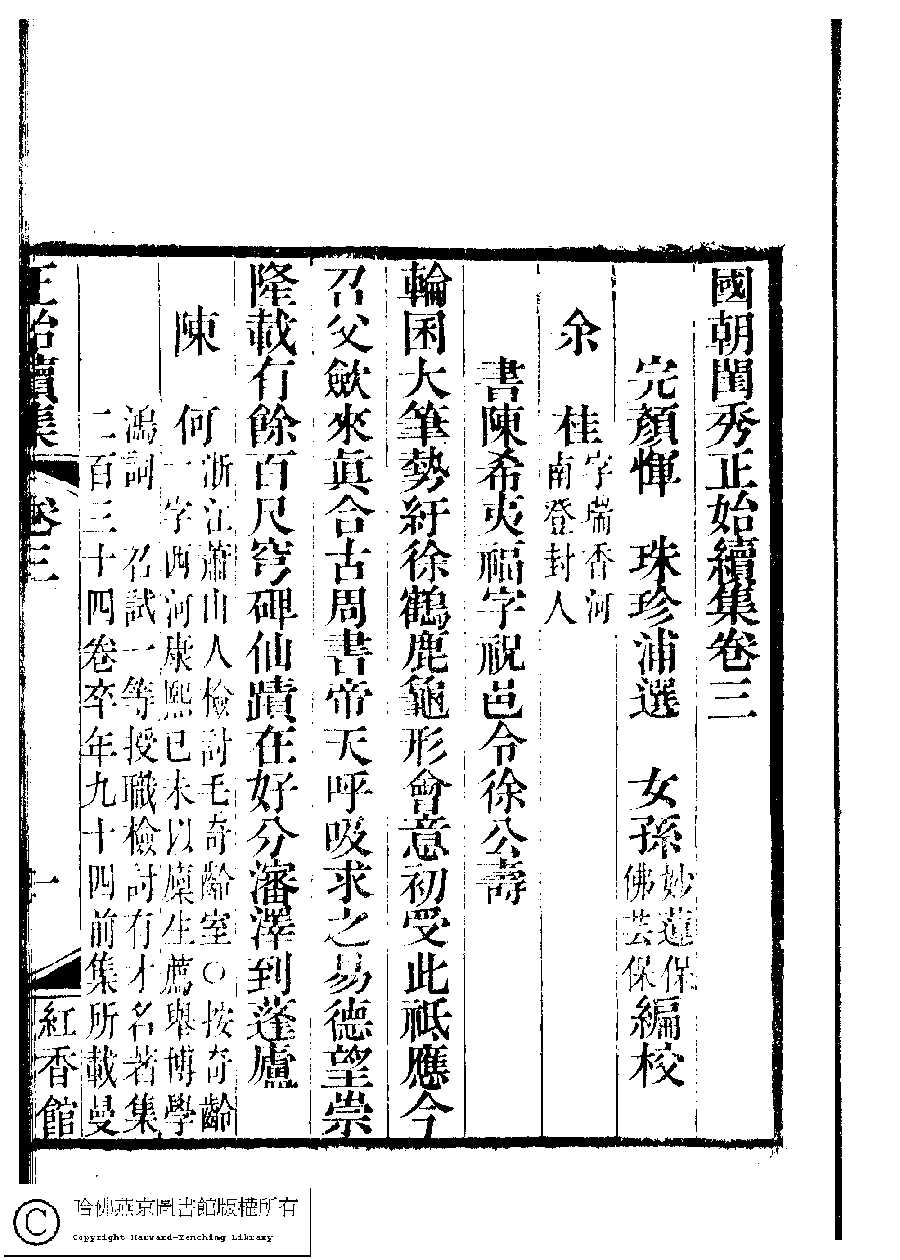 國朝閨秀正始續集卷三
完顏惲　珠珍浦選　女孫妙蓮保佛芸保編校
余　桂字瑞香河南登封人
書陳希夷福字祝邑令徐公壽
輪囷大筆勢紆徐鶴鹿龜形會意初受此祗應今
召父歛來眞合古周書帝天呼吸求之易德望崇
隆載有餘百尺穹碑仙蹟在好分瀋澤到蓬廬
陳　何浙江蕭山人檢討毛奇齡室○按奇齡
一字西河康熙己未以廩生薦舉博學
鴻詞　召試一等授職檢討有才名著集
二百三十四卷卒年九十四前集所載曼
正始續集　卷三　一　紅香館
哈佛燕京圖書館版權所有
Copyright Harvard-Yenching Library